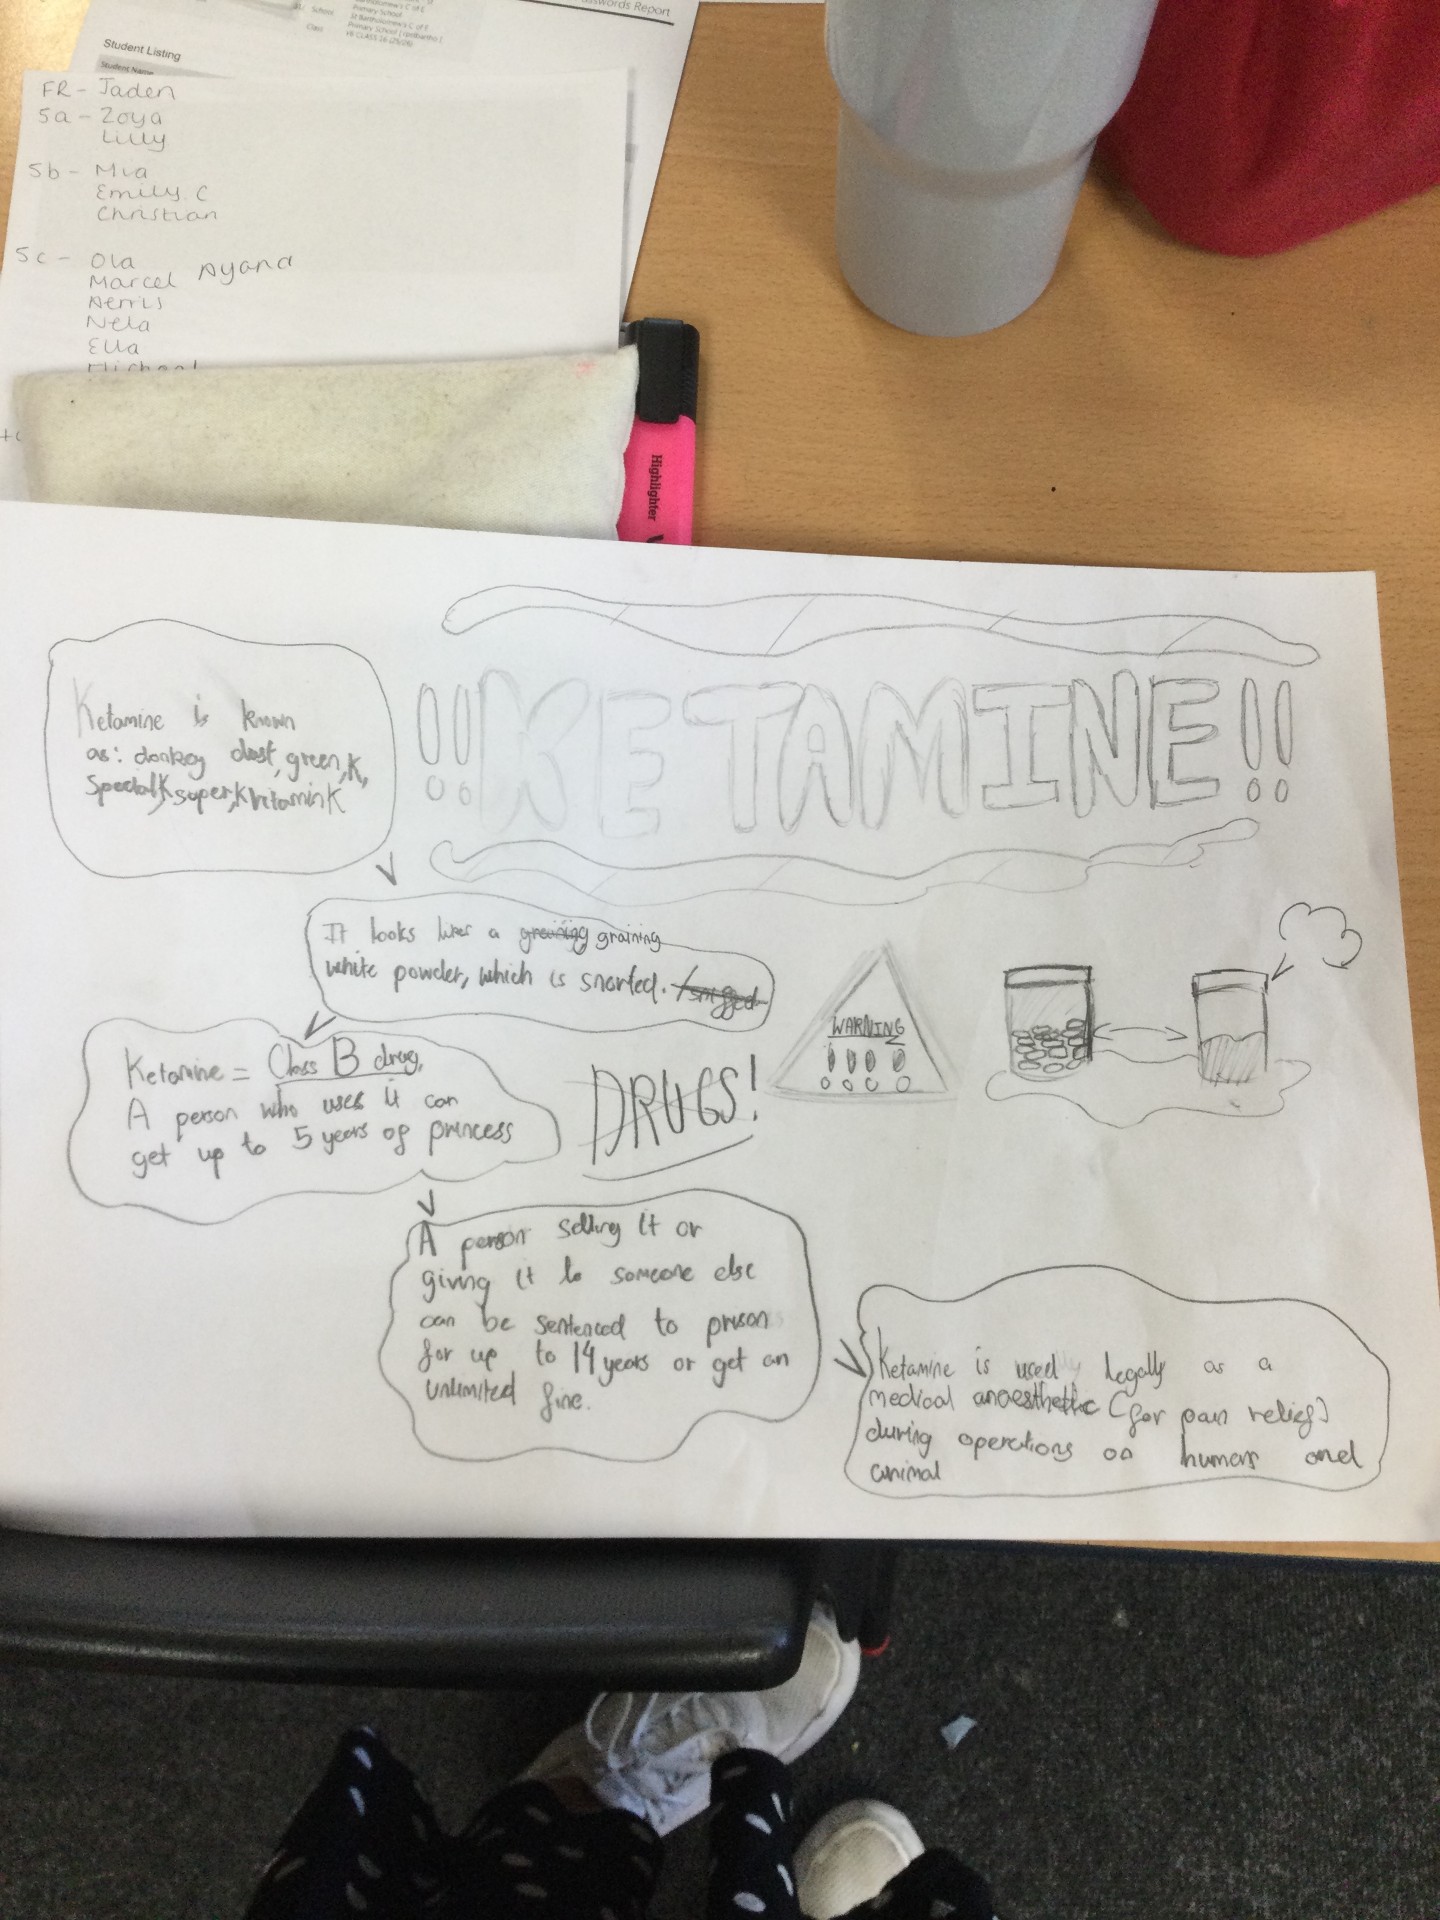 swords Report
School
Primary School
St Bartholomew's C of E
Class
Student Listing
Student Name
FR - Jaden
5a - Zoya
Lilly
5b - Mia
Emily. C
Christian
5c - Ola
Marcel Ayana
Aerris
Nela
Ella
Michael
Highlighter
!!KETAMINE!!
Ketamine is known
as: donkey dust, green, K,
special K, super, K vitamin K
It looks likes a graining graining
white powder, which is snorted. /sniffed.
WARNING
!!!!
Ketamine = Class B drug,
A person who uses it can
get up to 5 years of princess
DRUGS!
A person selling it or
giving it to someone else
can be sentenced to prison
for up to 14 years or get an
unlimited fine.
Ketamine is used legally as a
medical anaesthetic (for pain relief)
during operations on humans and
animal